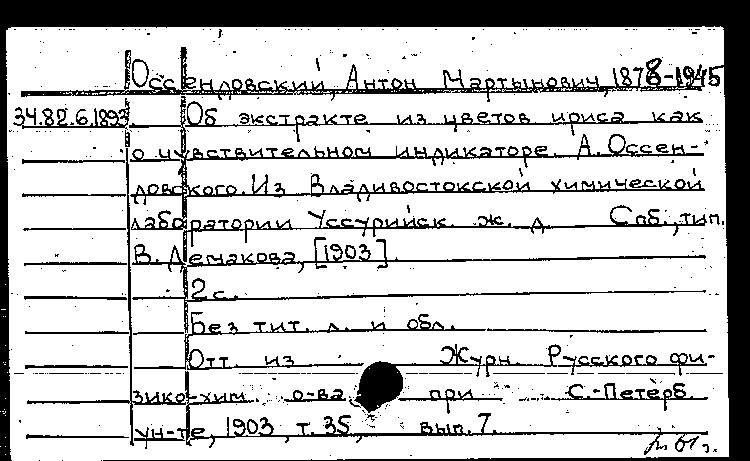 Оссендовский, Антон Мартынович, 1878-1945
34.82.6.1893 Об экстракте из цветов ириса как
о чувствительном индикаторе. А. Оссен-
довского. Из Владивостокской химической
лаборатории Уссурийск. ж. д. Спб., тип.
В. Демакова, [1903].
2 с.
Без тит. л. и обл.
Отт. из Журн. Русского фи-
зико-хим. о-ва при С.-Петерб.
ун-те, 1903, т. 35, вып. 7.
61 г.